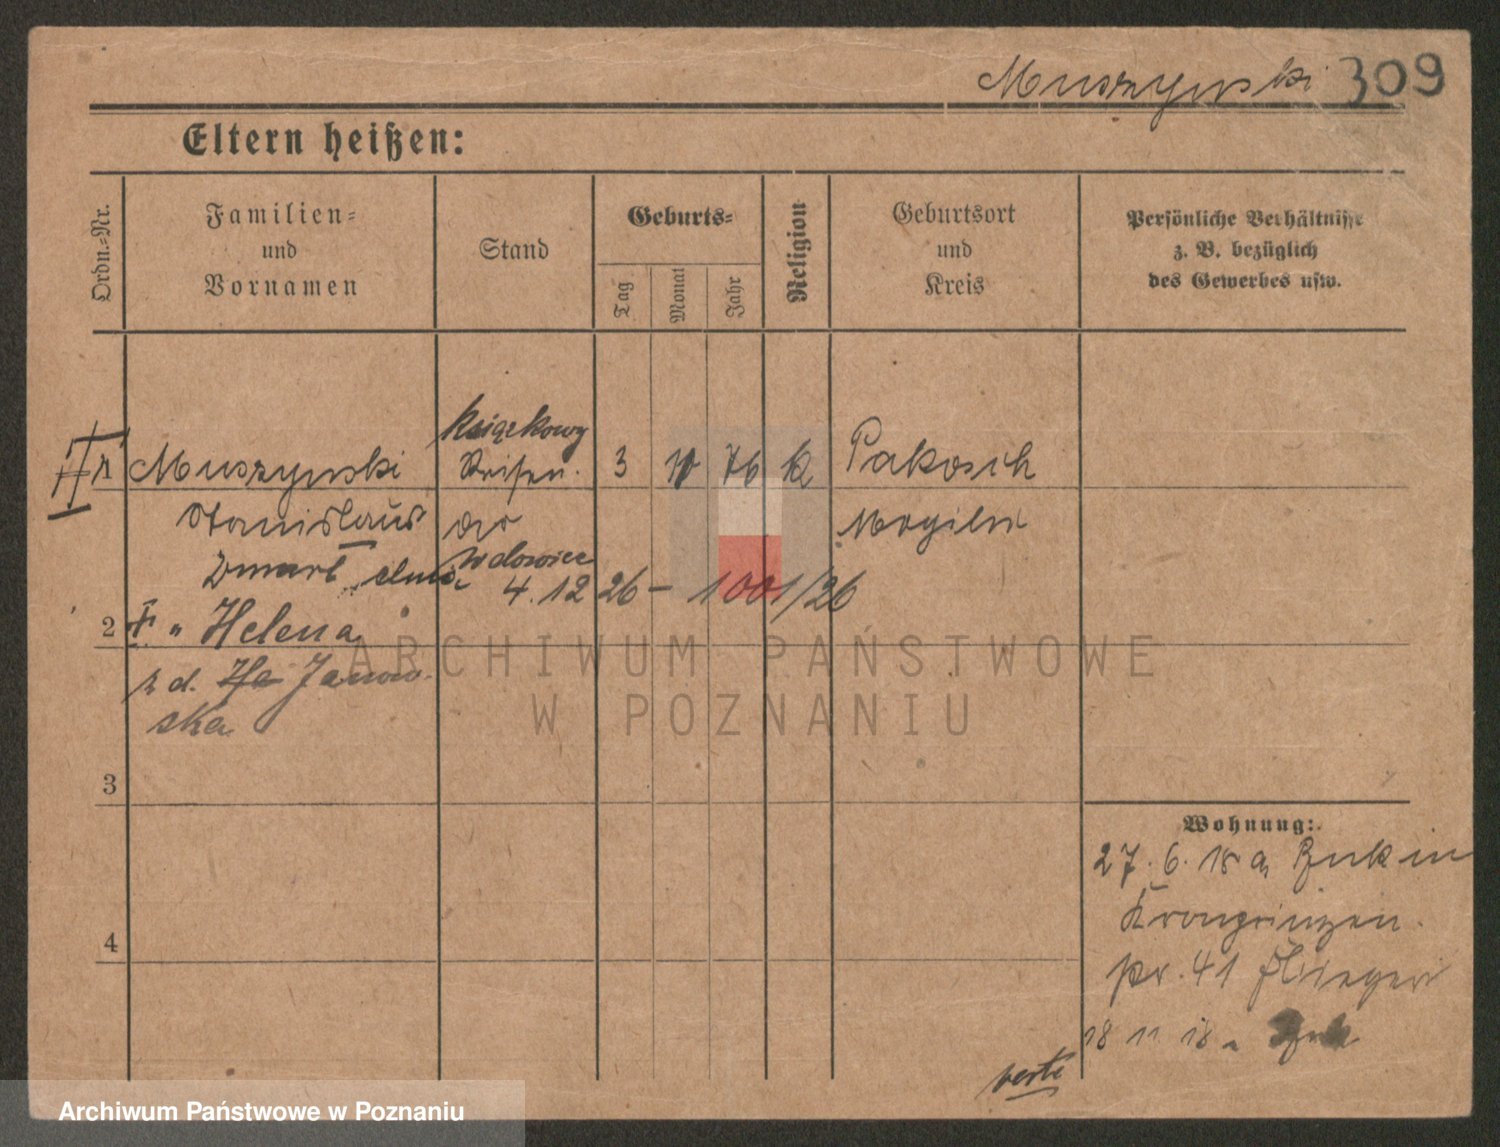 Muszynski 309
Eltern heißen:
Ordn.-Nr.
Familien-
und
Vornamen
Stand
Geburts-
Tag
Monat
Jahr
Religion
Geburtsort
und
Kreis
Persönliche Verhältnisse
z. B. bezüglich
des Gewerbes usw.
1 Muszynski
Stanislaus
Zmarł dnia 4.12 26 – 1001/26
książkowy
wdowiec
3 76 k
Pakosch
Mogilno
2 " Helena
z d. Ha Janow-
ska
3
4
Wohnung:
27. 6. 18 a
Kronprinzen.
41 Flieger
18 11 18
verte
ARCHIWUM PAŃSTWOWE
W POZNANIU
Archiwum Państwowe w Poznaniu